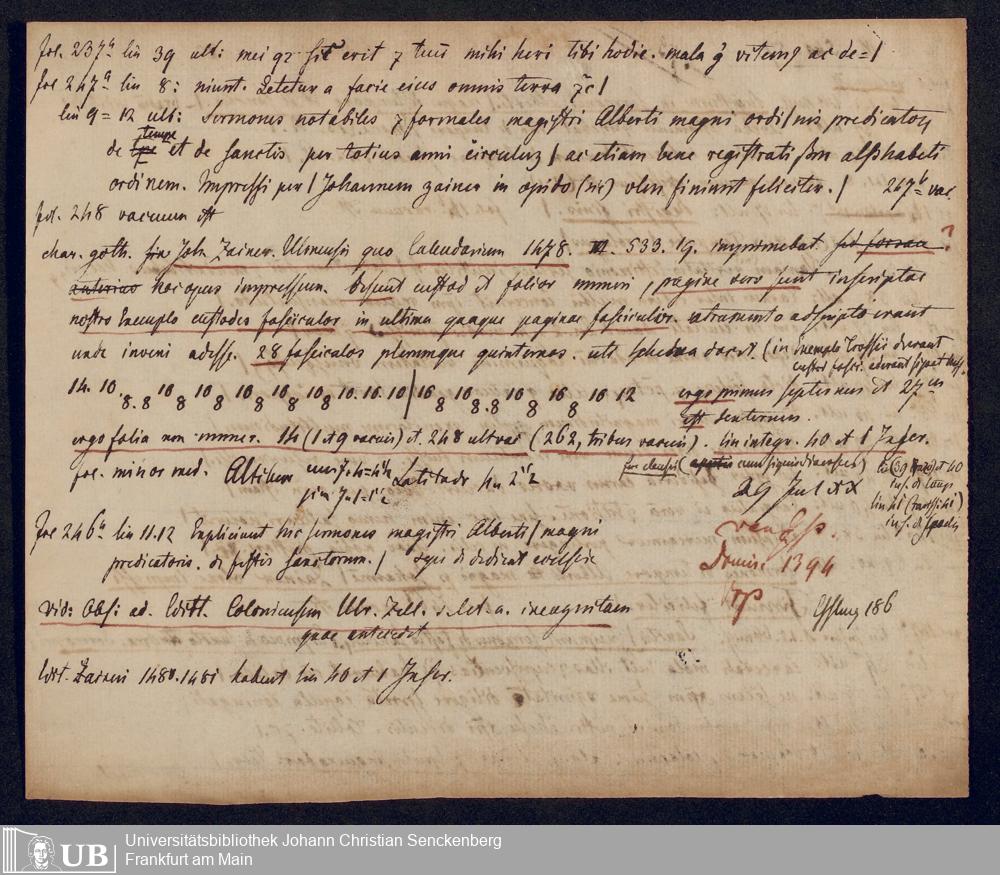 fol. 237ᵃ lin 39 ult: mei qz sic erit ⁊ tuus mihi heri tibi hodie. mala ac de= /
fol 247ᵃ lin 8: niunt. Letetur a facie eius omnis terra ⁊c /
lin 9 = 12 ult: Sermones notabiles ⁊ formales magistri Alberti magni ordi/nis predicatorum
de tempe et de sanctis per totius anni circulum / ac etiam bene registrati alphabeti
ordinem. Impressi per / Johannem zainer in opido (sic) ulm finiunt feliciter. / 267ᵇ vac
fol. 248 vacuum est
char. goth. fin Joh. Zainer. Ulmensis quo Calendarium 1478. 533. 19. imprimebat sed forsan ?
anterius hoc opus impressum. Desunt custod et folior numeri, pagine vero sunt inscriptae
nostro Exemplo custodes fasciculor in ultima quaque paginae fasciculor. atramento adscripto erant
unde inveni adesse. 28 fasciculos plerumque quinternos. uti schema docet. (in Exemplo Trossii deerant
custod fasci. aderant signat
14. 10. 8. 8 10 8 10 8 10 8 10 8 10 8 10. 10. 10 10 / 10 8 10 8. 8 10 8 10 8 10 12 ergo primus septernus et 27us
est senternus.
ergo folia non numer. 14 (1 et 9 vacuis) et. 248 ult vac (262, tribus vacuis). lin integr. 40 et 1 Infer.
for. minor med. Altitudo Latitudo 4u 2½
29 Jul
lin 41 (Trossii)
Fol 246ᵃ lin 11.12 Expliciunt hic sermones magistri Alberti / magni
predicatoris. de festis Sanctorum. / seqs de dedicat ecclesie
van Ess.
Domin. 1394
Vid: Obs: ad. Editt. Coloniensem Ulr. Zell. s. l. et. a. incognitam
quae antecedit
Essling 186
Edit. Zaineri 1480. 1481 habent lin 40 et 1 Infer.
UB
Universitätsbibliothek Johann Christian Senckenberg
Frankfurt am Main